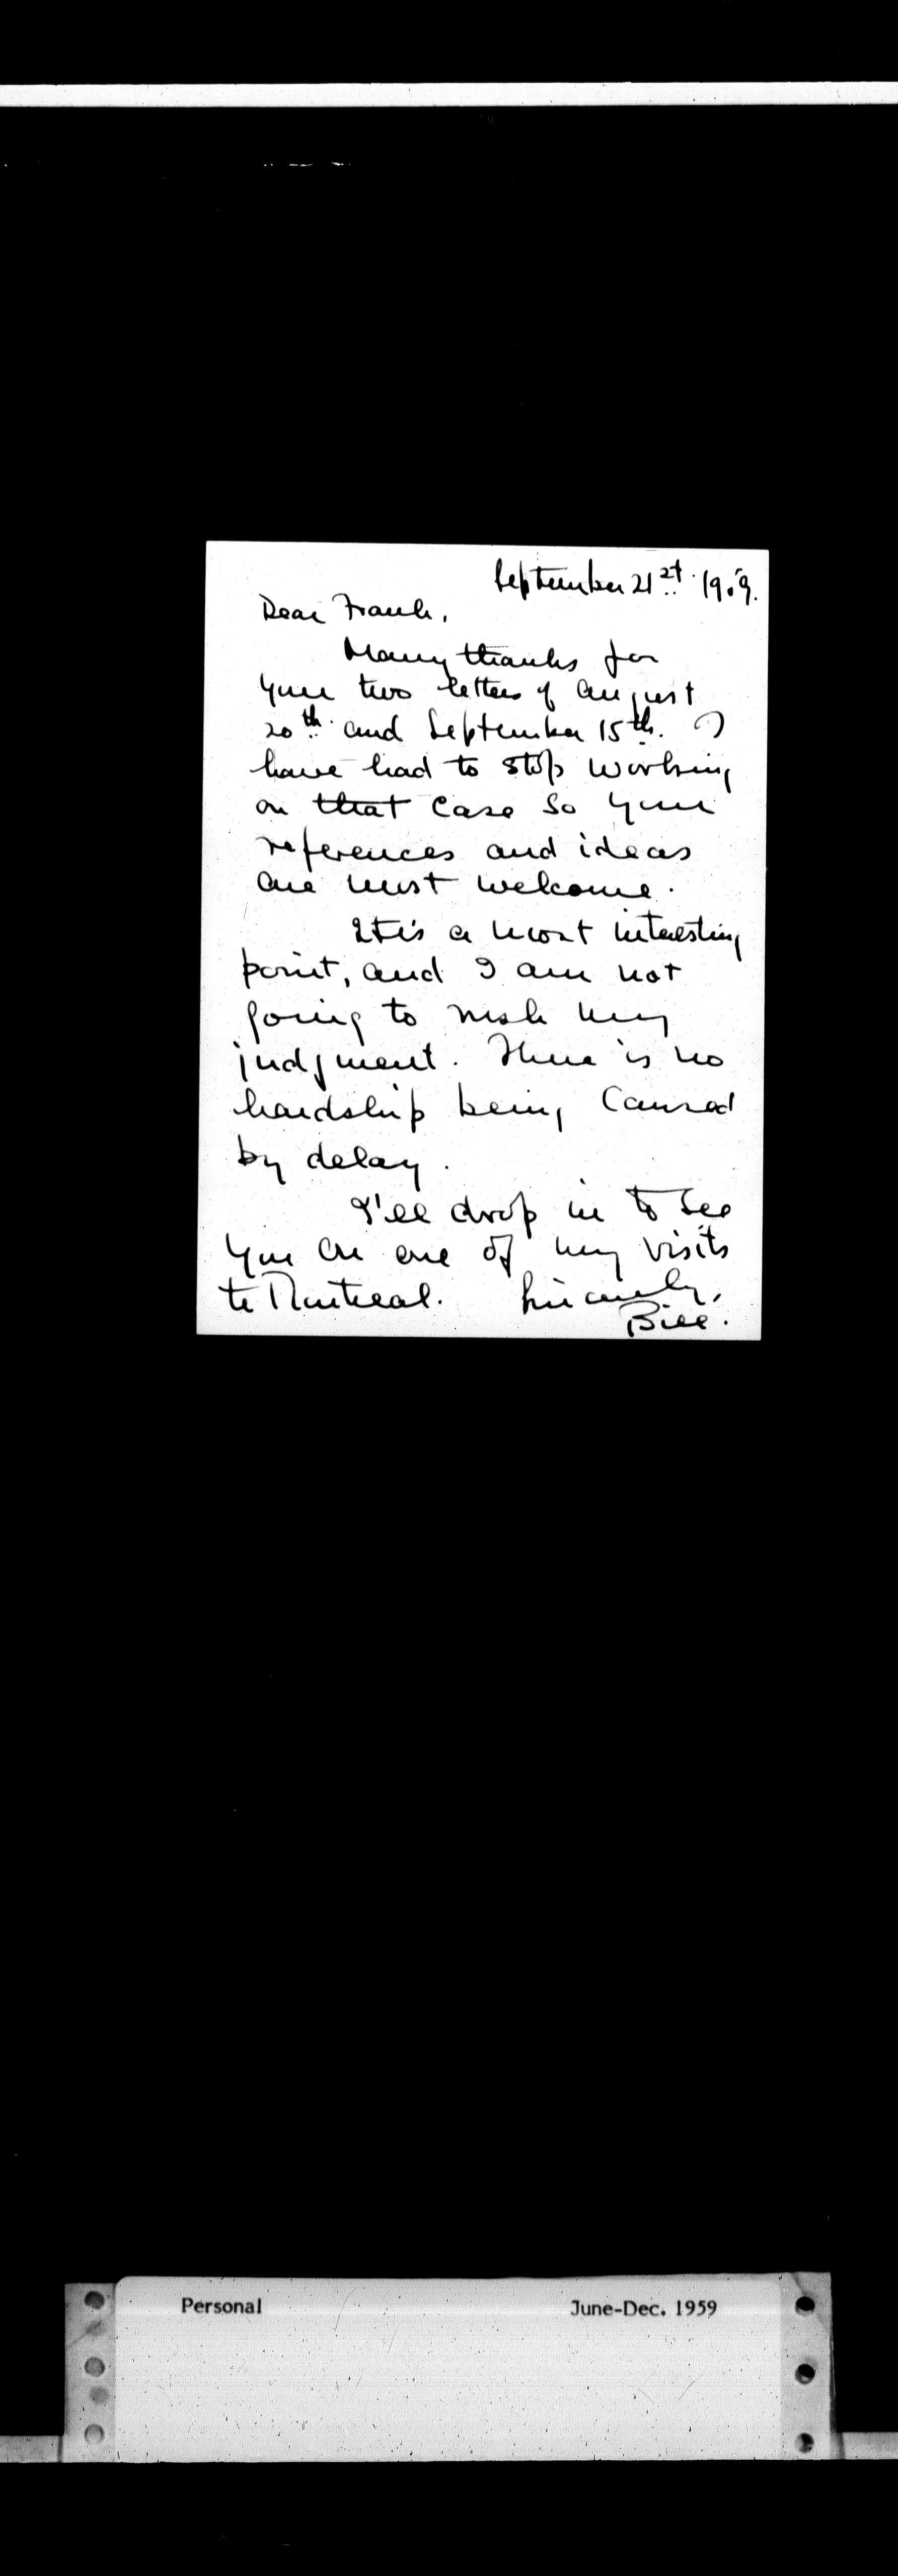 September 21st. 1959.
Dear Frank,
Many thanks for
your two letters of August
20th. and September 15th. I
have had to stop working
on that case so your
references and ideas
are most welcome.
It is a most interesting
point, and I am not
going to rush my
judgment. There is no
hardship being caused
by delay.
I'll drop in to see
you on one of my visits
to Montreal. Sincerely,
Bill.
Personal June-Dec. 1959